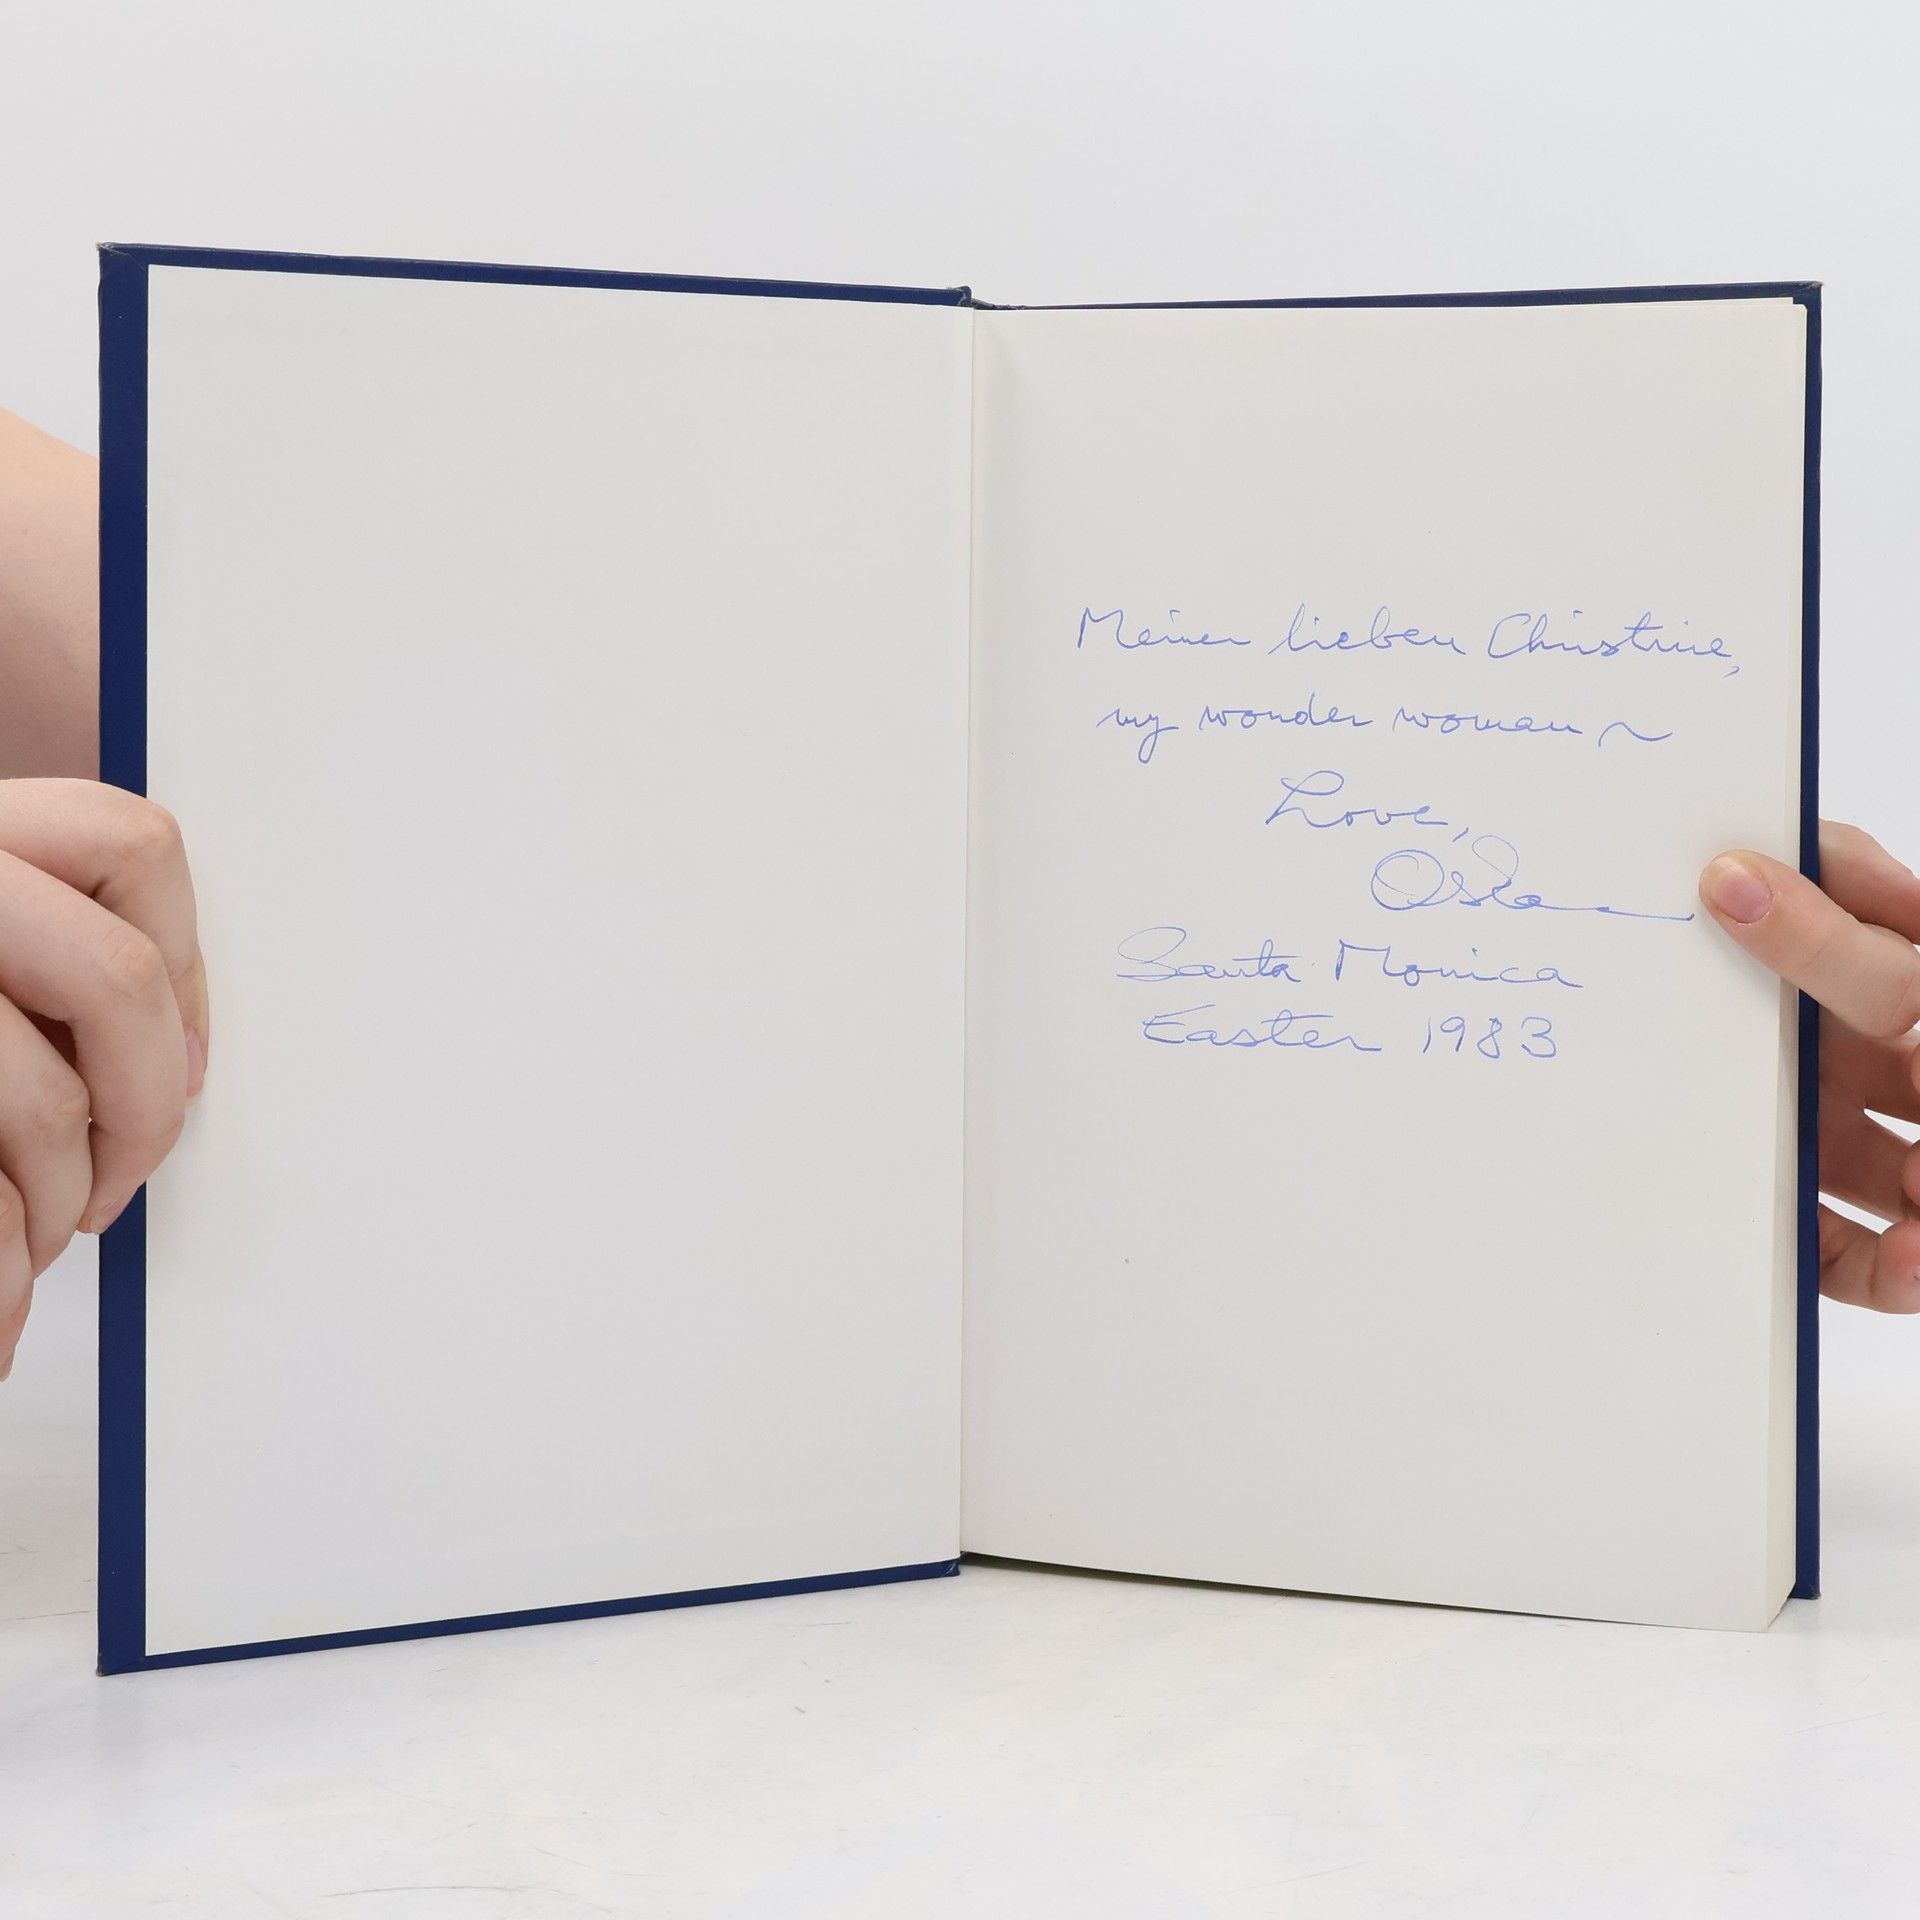 Meiner lieben Christine,
my wonder woman ~
Love,
Oskar
Santa Monica
Easter 1983